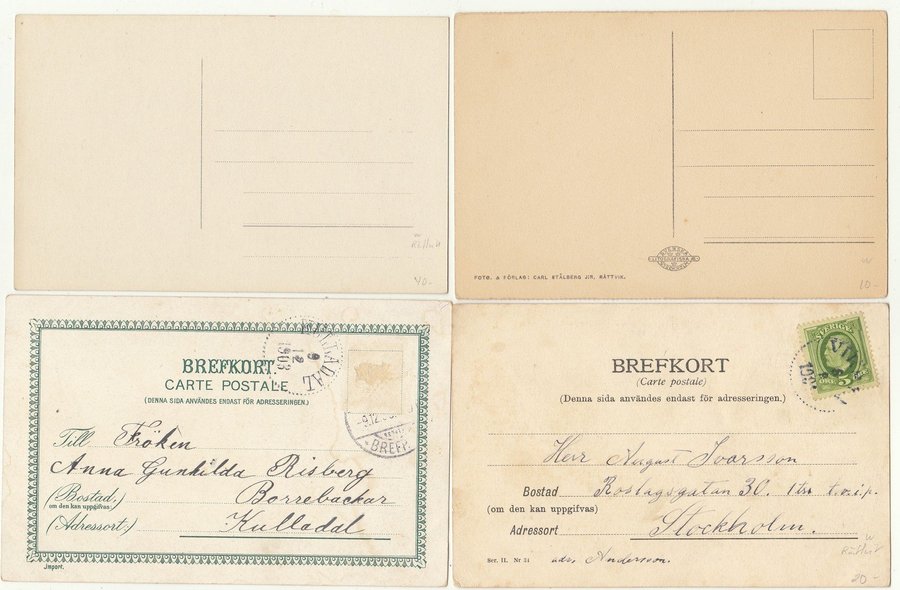 40-
SVERSEN
FOTO. & FÖRLAG: CARL STÅLBERG JR, RÄTTVIK.
10-
BREFKORT
CARTE POSTALE
(DENNA SIDA ANVÄNDES ENDAST FÖR ADRESSERINGEN.)
KULLADAL
9
12
1903
-9.12
BREFP
Till Fröken
Anna Gunhilda Risberg
(Bostad.) Borrebackar
(om den kan uppgifvas)
(Adressort:) Kulladal
Import.
SVERIGE
ÖRE 5 ÖRE
BREFKORT
(Carte postale)
(Denna sida användes endast för adresseringen.)
Herr August Ivarsson
Bostad Roslagsgatan 30. 1 tr. t.v. i. p.
(om den kan uppgifvas)
Adressort Stockholm.
Ser. II. Nr 14 adr. Andersson.
20-